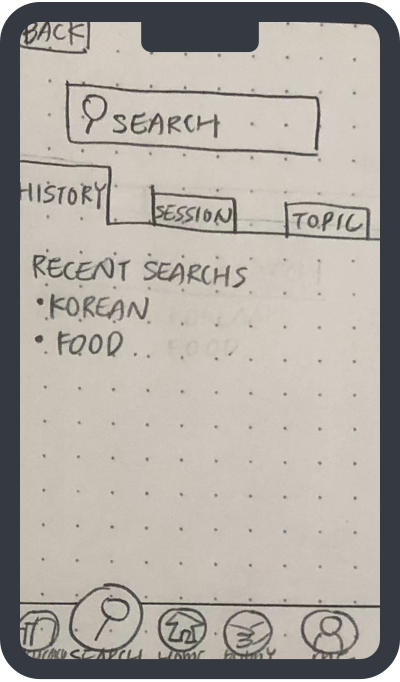 BACK
SEARCH
HISTORY
SESSION
TOPIC
RECENT SEARCHS
•KOREAN
• FOOD
SEARCH
HOME